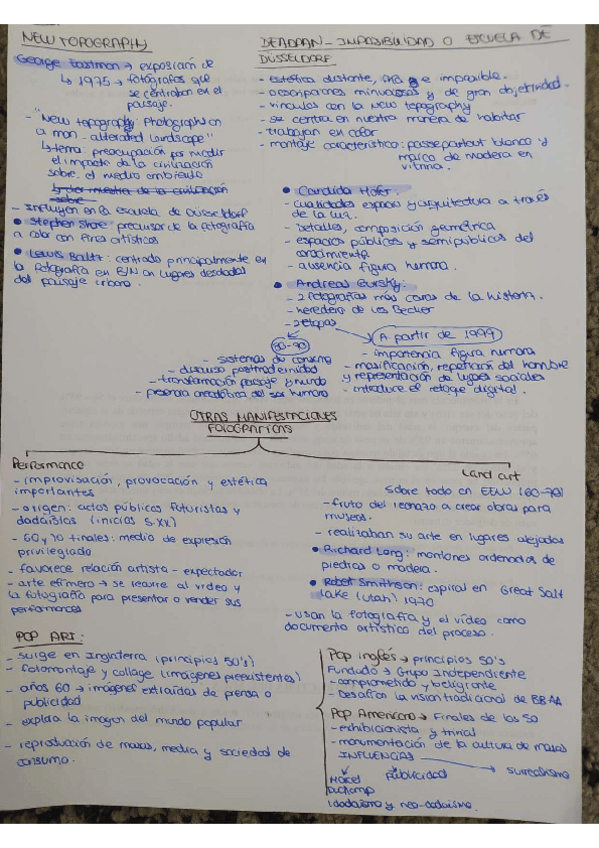 NEW TOPOGRAPHY
George Eastman → exposición de
↳ 1975 → fotógrafos que
se centraban en el
paisaje.
- "New topography: Photographs on
a man-alterated Landscape"
↳ tema: preocupación por medir
el impacto de la civilización
sobre el medio ambiente
- Influyen en la escuela de Düsseldorf
• Stephen Shore: precursor de la fotografía
a color con fines artísticos
• Lewis Baltz: centrado principalmente en
la fotografía en B/N en lugares
del paisaje urbano.
DEADPAN - IMPASIBILIDAD O ESCUELA DE
DÜSSELDORF
- estética distante, e impasible.
- Descripciones minuciosas y de gran objetividad.
- vínculos con la New topography
- se centra en nuestra manera de habitar
- trabajan en color
- montaje característico: passepartout blanco y
marco de madera en
vitrina.
• Candida Höfer:
- cualidades espacio y arquitectura a través
de la luz.
- Detalles, composición geométrica
- espacios públicos y semipúblicos del
conocimiento
- ausencia figura humana.
• Andreas Gursky:
- 2 fotografías más caras de la historia.
- heredero de los Becher
- 2 etapas
80-90
- sistemas de consumo
- discurso postmodernidad
- transformación paisaje y mundo
- presencia del ser humano
A partir de 1997
- importancia figura humana
- masificación, repetición del hombre
y representación de lugares sociales
- introduce el retoque digital.
OTRAS MANIFESTACIONES
FOTOGRÁFICAS
Performance
- improvisación, provocación y estética
importantes
- origen: actos públicos futuristas y
dadaístas (inicios s.XX)
- 60 y 70 finales: medio de expresión
privilegiado
- favorece relación artista - espectador
- arte efímero → se recurre al video y
la fotografía para presentar o vender sus
performances
Land art
Sobre todo en EEUU (60-70)
- fruto del rechazo a crear obras para
museos.
- realizaban su arte en lugares alejados
• Richard Long: montones ordenados de
piedras o madera.
• Robert Smithson: espiral en Great Salt
Lake (Utah) 1970
- usan la fotografía y el vídeo como
documento artístico del proceso.
POP ART:
- surge en Inglaterra (principios 50's)
- fotomontaje y collage (imágenes preexistentes)
- años 60 → imágenes extraídas de prensa o
publicidad
- explora la imagen del mundo popular
- reproducción de masas, media y sociedad de
consumo.
Pop inglés → principios 50's
Fundado → Grupo Independiente
- comprometido y beligrante
- Desafían la visión tradicional de BBAA
Pop Americano → Finales de los 50
- exhibicionista y trivial
- monumentación de la cultura de masas
INFLUENCIAS → surrealismo
Marcel
Duchamp
Publicidad
dadaísmo y neo-dadaísmo.